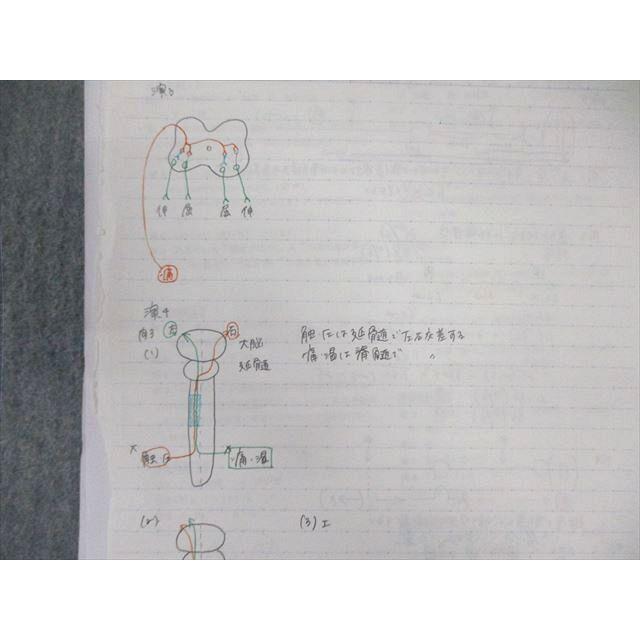 演3
伸 屈 屈 伸
痛
演4
問3
(1)
左 右
大脳
延髄
触圧は延髄で左右交差する
痛・温は脊髄で 〃
触圧
痛・温
(2)
(3) エ